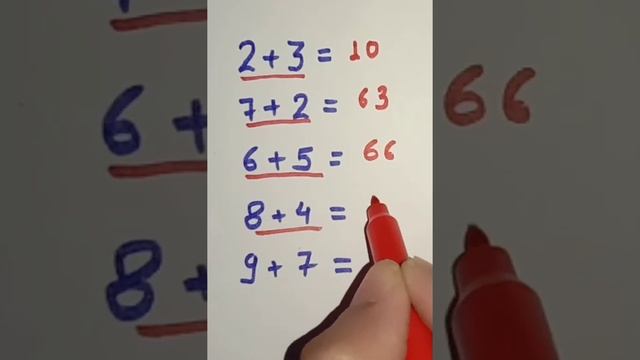 2 + 3 = 10
7 + 2 = 63
6 + 5 = 66
8 + 4 =
9 + 7 =